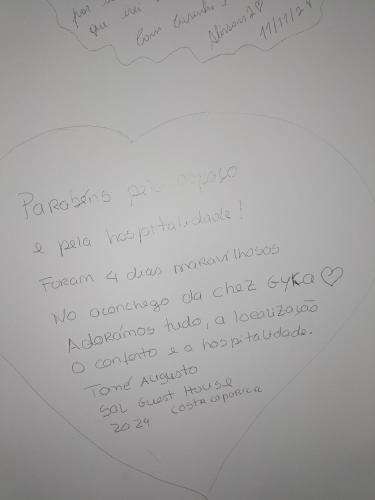 por
que
Com Carinho
11/11/24
Parabéns pelo espaço
e pela hospitalidade!
Foram 4 dias maravilhosos
No aconchego da chez Gyka ♡
Adorámos tudo, a localização
O conforto e a hospitalidade.
Tomé Augusto
Sol Guest House
2024 Costa Caparica